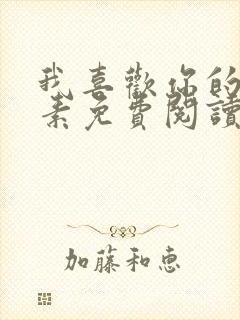 我喜歡你的
素免費閱讀
加藤和惠